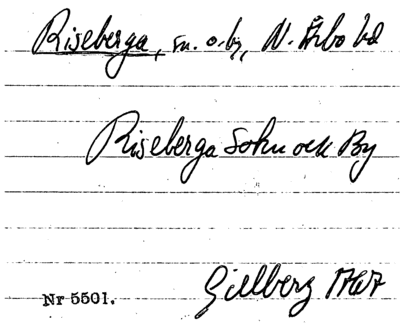 Riseberga, sn. o. by, N. Åsbo hd
Riseberga Sokn och By
Gillberg 1767
Nr 5501.